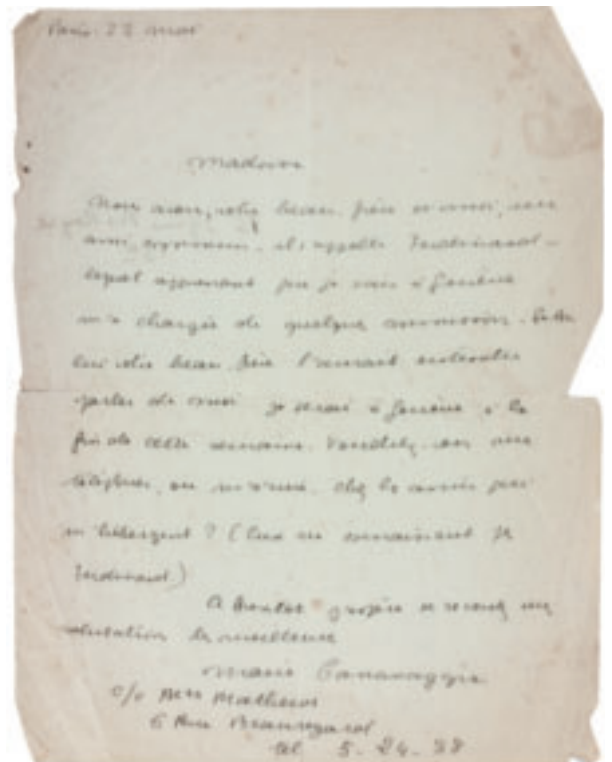 Paris 22 mai
Madame
Nous avons, votre beau-père et moi, un
ami commun. il s'appelle Ferdinand -
lequel apprenant que je vais à Genève
m'a chargée de quelque commission.
lui votre beau père l'aurait entendu
parler de moi je serai à Genève à la
fin de cette semaine. Voudriez-vous me
téléphoner, ou m'écrire chez les amis qui
m'hébergent ? (Eux ne connaissent pas
Ferdinand.)
A bientôt j'espère et recevez mes
salutations les meilleures
Marie Canavaggia
c/o Mrs Matheus
6 Rue Beauregard
tel 5-24-38